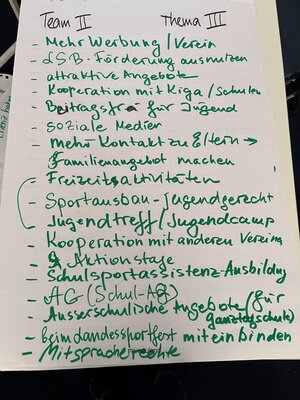 Team II Thema III
- Mehr Werbung/Verein
- LSB-Förderung ausnutzen
- attraktive Angebote
- Kooperation mit Kiga/Schulen
- Beitragsfrei für Jugend
- soziale Medien
- mehr Kontakt zu Eltern →
Familienangebot machen
- Freizeitaktivitäten
- Sportausbau - jugendgerecht
- Jugendtreff/Jugendcamp
- Kooperation mit anderen Vereinen
- Aktionstage
- Schulsportassistenz-Ausbildung
- AG (Schul-AG)
- Ausserschulische Angebote (für
Ganztagsschule)
- beim Landessportfest mit einbinden
- Mitspracherechte